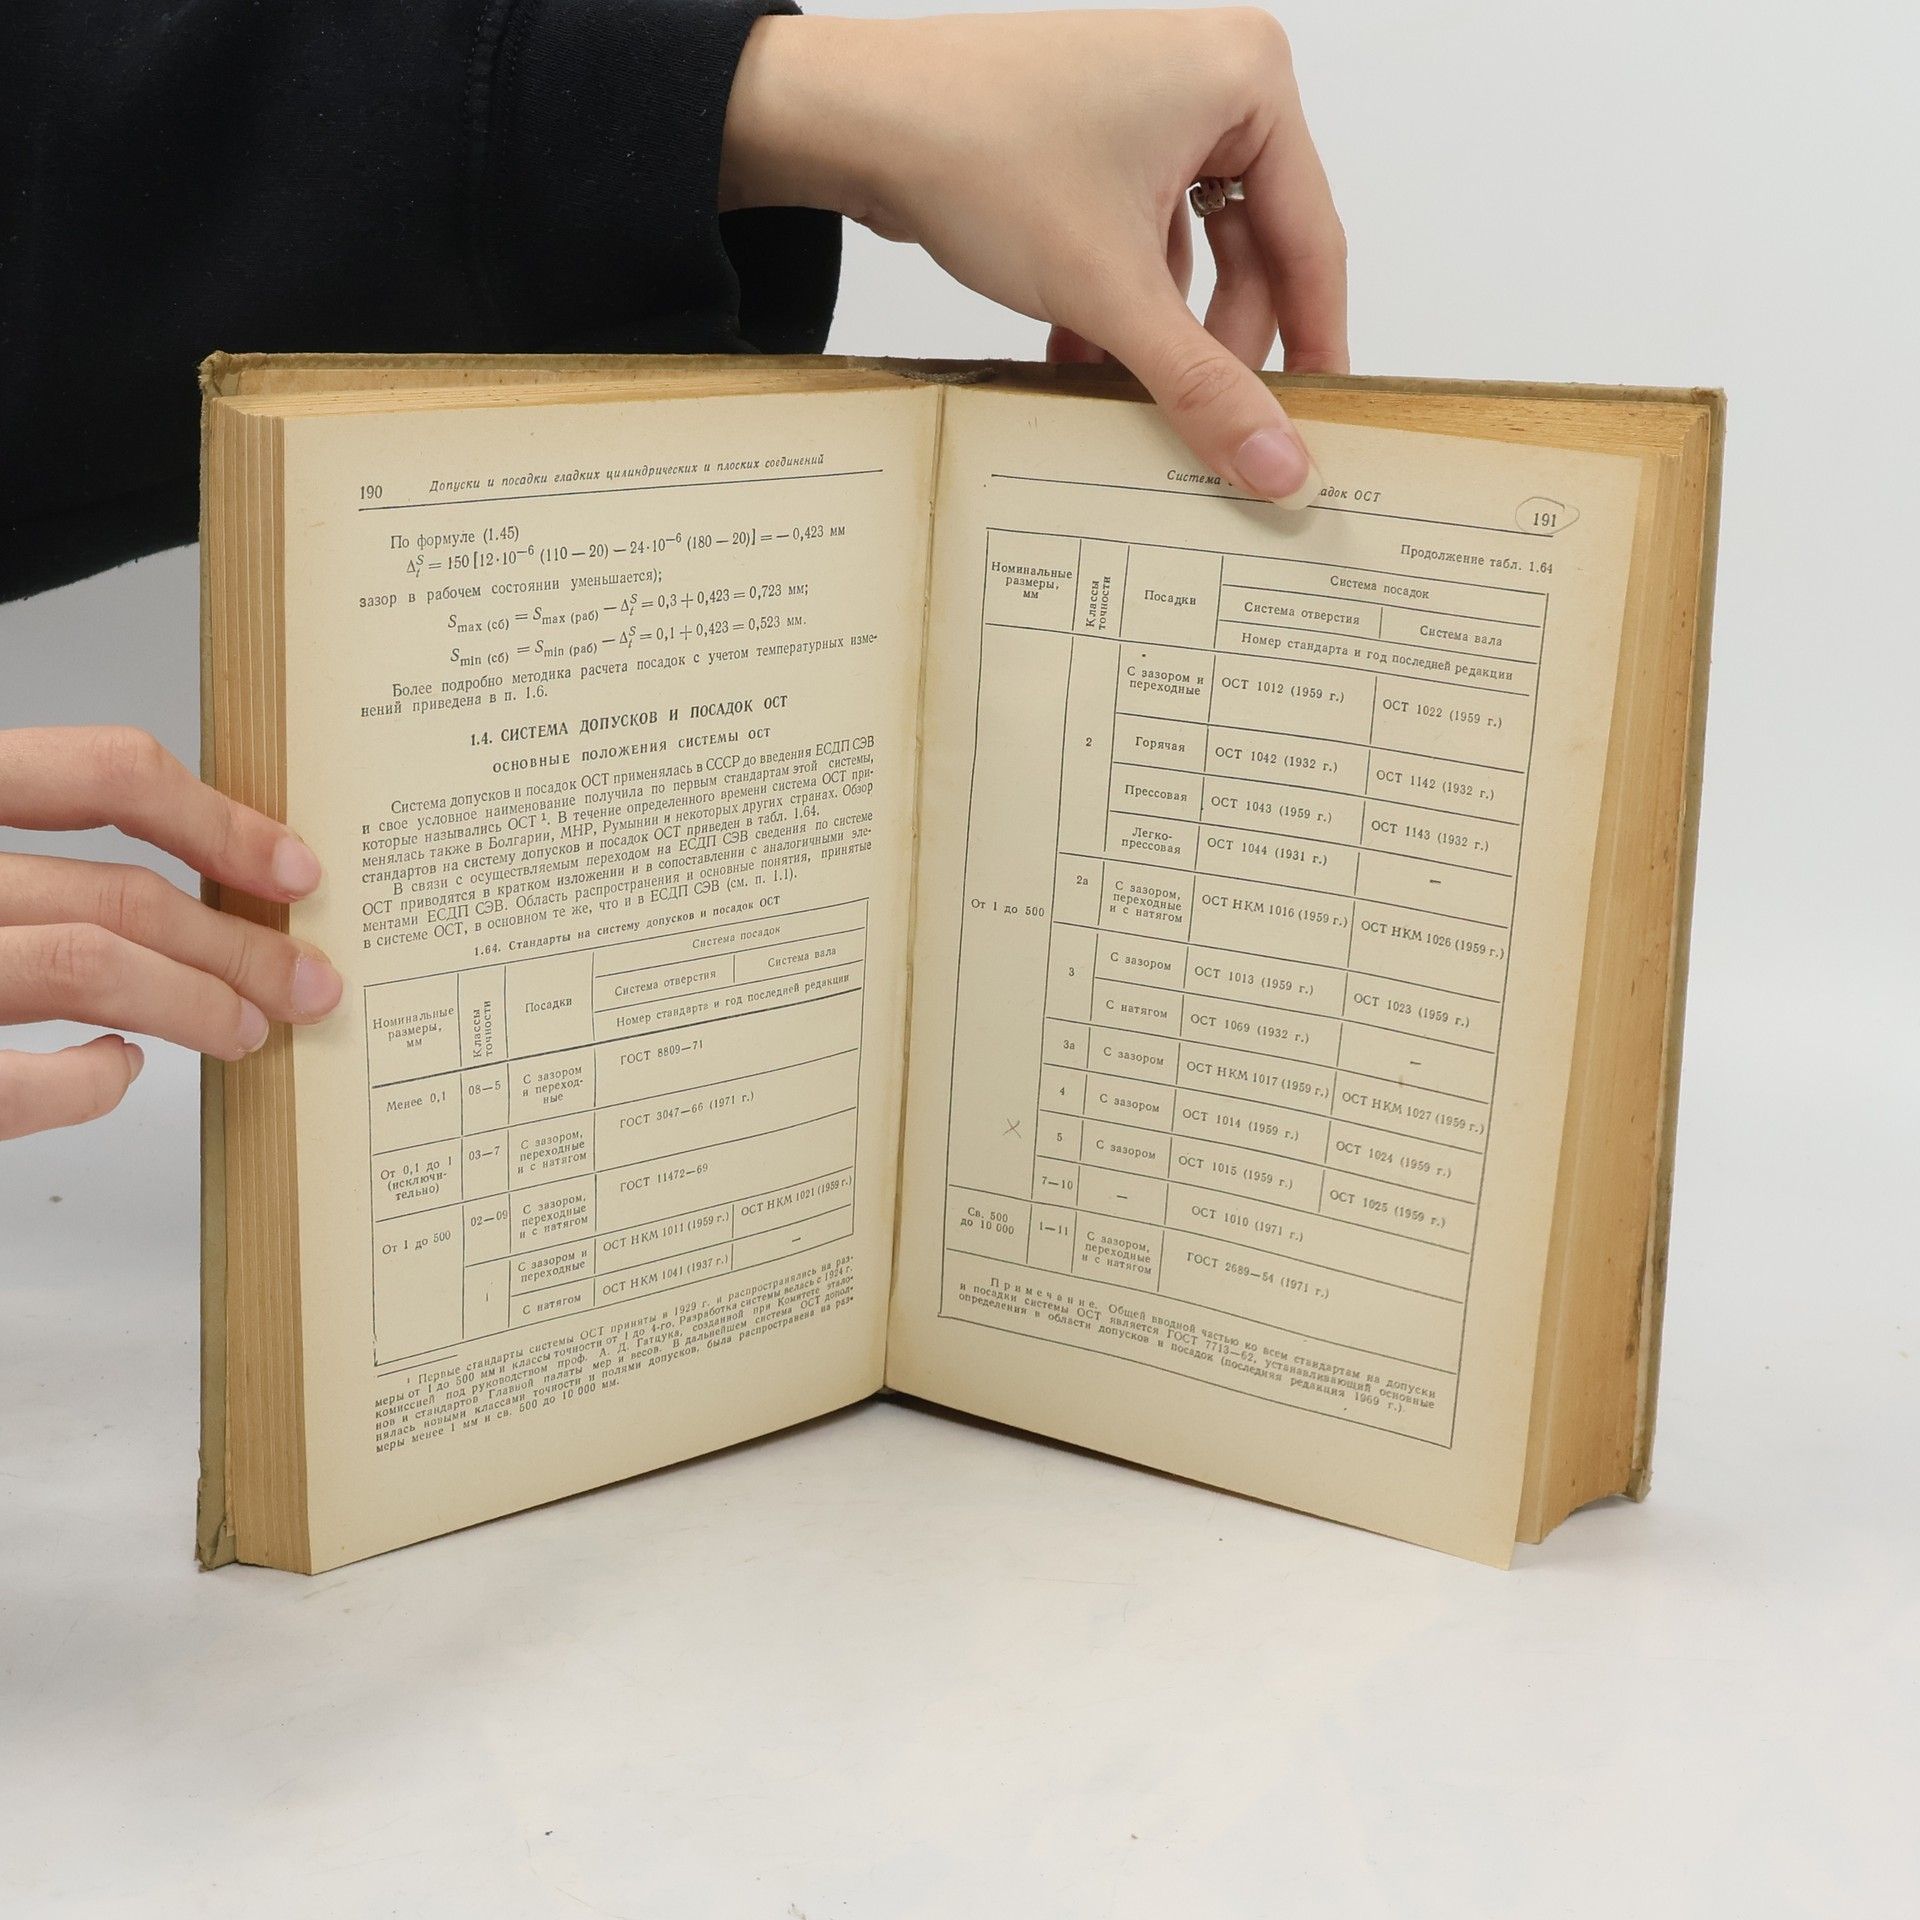 190
Допуски и посадки гладких цилиндрических и плоских соединений
По формуле (1.45)
Δ_t^S = 150 [12·10⁻⁶ (110 — 20) — 24·10⁻⁶ (180 — 20)] = — 0,423 мм
зазор в рабочем состоянии уменьшается);
S_max (сб) = S_max (раб) — Δ_t^S = 0,3 + 0,423 = 0,723 мм;
S_min (сб) = S_min (раб) — Δ_t^S = 0,1 + 0,423 = 0,523 мм.
Более подробно методика расчета посадок с учетом температурных изме-
нений приведена в п. 1.6.
1.4. СИСТЕМА ДОПУСКОВ И ПОСАДОК ОСТ
ОСНОВНЫЕ ПОЛОЖЕНИЯ СИСТЕМЫ ОСТ
Система допусков и посадок ОСТ применялась в СССР до введения ЕСДП СЭВ
и свое условное наименование получила по первым стандартам этой системы,
которые назывались ОСТ ¹. В течение определенного времени система ОСТ при-
менялась также в Болгарии, МНР, Румынии и некоторых других странах. Обзор
стандартов на систему допусков и посадок ОСТ приведен в табл. 1.64.
В связи с осуществляемым переходом на ЕСДП СЭВ сведения по системе
ОСТ приводятся в кратком изложении и в сопоставлении с аналогичными эле-
ментами ЕСДП СЭВ. Область распространения и основные понятия, принятые
в системе ОСТ, в основном те же, что и в ЕСДП СЭВ (см. п. 1.1).
1.64. Стандарты на систему допусков и посадок ОСТ
Номинальные
размеры,
мм
Классы
точности
Посадки
Система посадок
Система отверстия
Система вала
Номер стандарта и год последней редакции
Менее 0,1
08—5
С зазором
и переход-
ные
ГОСТ 8809—71
От 0,1 до 1
(исключи-
тельно)
03—7
С зазором,
переходные
и с натягом
ГОСТ 3047—66 (1971 г.)
От 1 до 500
02—09
С зазором,
переходные
и с натягом
ГОСТ 11472—69
1
С зазором и
переходные
ОСТ НКМ 1011 (1959 г.)
ОСТ НКМ 1021 (1959 г.)
С натягом
ОСТ НКМ 1041 (1937 г.)
—
¹ Первые стандарты системы ОСТ приняты в 1929 г. и распространялись на раз-
меры от 1 до 500 мм и классы точности от 1 до 4-го. Разработка системы велась с 1924 г.
комиссией под руководством проф. А. Д. Гатцука, созданной при Комитете этало-
нов и стандартов Главной палаты мер и весов. В дальнейшем система ОСТ допол-
нялась новыми классами точности и полями допусков, была распространена на раз-
меры менее 1 мм и св. 500 до 10 000 мм.
Система адок ОСТ
191
Продолжение табл. 1.64
Номинальные
размеры,
мм
Классы
точности
Посадки
Система посадок
Система отверстия
Система вала
Номер стандарта и год последней редакции
От 1 до 500
2
С зазором и
переходные
ОСТ 1012 (1959 г.)
ОСТ 1022 (1959 г.)
Горячая
ОСТ 1042 (1932 г.)
ОСТ 1142 (1932 г.)
Прессовая
ОСТ 1043 (1959 г.)
ОСТ 1143 (1932 г.)
Легко-
прессовая
ОСТ 1044 (1931 г.)
—
2а
С зазором,
переходные
и с натягом
ОСТ НКМ 1016 (1959 г.)
ОСТ НКМ 1026 (1959 г.)
3
С зазором
ОСТ 1013 (1959 г.)
ОСТ 1023 (1959 г.)
С натягом
ОСТ 1069 (1932 г.)
—
3а
С зазором
ОСТ НКМ 1017 (1959 г.)
ОСТ НКМ 1027 (1959 г.)
4
С зазором
ОСТ 1014 (1959 г.)
ОСТ 1024 (1959 г.)
5
С зазором
ОСТ 1015 (1959 г.)
ОСТ 1025 (1959 г.)
7—10
—
ОСТ 1010 (1971 г.)
Св. 500
до 10 000
1—11
С зазором,
переходные
и с натягом
ГОСТ 2689—54 (1971 г.)
Примечание. Общей вводной частью ко всем стандартам на допуски
и посадки системы ОСТ является ГОСТ 7713—62, устанавливающий основные
определения в области допусков и посадок (последняя редакция 1969 г.).